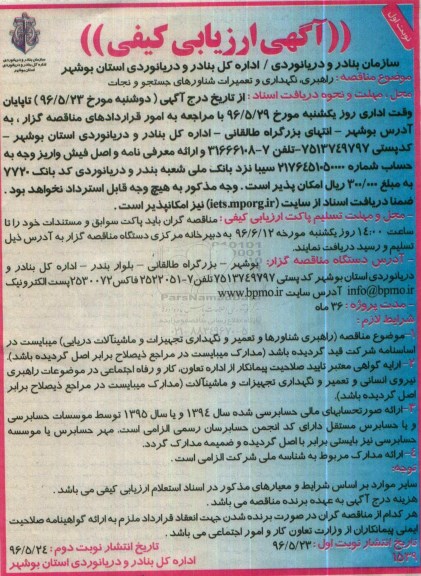 نوبت اول
((آگهی ارزیابی کیفی))
سازمان بنادر و دریانوردی
اداره کل بنادر و دریانوردی استان بوشهر
سازمان بنادر و دریانوردی / اداره کل بنادر و دریانوردی استان بوشهر
موضوع مناقصه : راهبری، نگهداری و تعمیرات شناورهای جستجو و نجات
محل ، مهلت و نحوه دریافت اسناد : از تاریخ درج آگهی ( دوشنبه مورخ ۹۶/۵/۲۳ ) تاپایان
وقت اداری روز یکشنبه مورخ ۹۶/۵/۲۹ با مراجعه به امور قراردادهای مناقصه گزار ، به
آدرس بوشهر - انتهای بزرگراه طالقانی - اداره کل بنادر و دریانوردی استان بوشهر -
کدپستی ۷۵۱۳۷۴۹۷۹۷-تلفن ۷-۳۱۶۶۶۱۰۸ و ارائه معرفی نامه و اصل فیش واریز وجه به
حساب شماره ۲۱۷۶۴۵۱۰۵۰۰۰۰ سیبا نزد بانک ملی شعبه بندر و دریانوردی کد بانک ۷۷۲۰
به مبلغ ۳۰۰/۰۰۰ ریال امکان پذیر است . وجه مذکور به هیچ وجه قابل استرداد نخواهد بود .
ضمنا دریافت اسناد از سایت (iets.mporg.ir) نیز امکانپذیر است .
- محل و مهلت تسلیم پاکت ارزیابی کیفی : مناقصه گران باید پاکت سوابق و مستندات خود را تا
ساعت ۱۴:۰۰ روز یکشنبه مورخه ۹۶/۶/۱۲ به دبیرخانه مرکزی دستگاه مناقصه گزار به آدرس ذیل
تسلیم و رسید دریافت نمایند.
- آدرس دستگاه مناقصه گزار: بوشهر - بزرگراه طالقانی - بلوار بندر - اداره کل بنادر و
دریانوردی استان بوشهر کد پستی ۷۵۱۳۷۴۹۷۹۷تلفن ۷-۲۵۲۲۰۵۱ فاکس ۲۵۳۰۰۷۲ پست الکترونیک
info@bpmo.ir آدرس سایت www.bpmo.ir
- مدت پروژه : ۳۶ ماه
شرایط لازم:
۱-موضوع مناقصه (راهبری شناورها و تعمیر و نگهداری تجهیزات و ماشینآلات دریایی) میبایست در
اساسنامه شرکت قید گردیده باشد (مدارک میبایست در مراجع ذیصلاح برابر اصل گردیده باشد).
۲-ارایه گواهی معتبر تایید صلاحیت پیمانکار از اداره تعاون، کار و رفاه اجتماعی در موضوعات راهبری
نیروی انسانی و تعمیر و نگهداری تجهیزات و ماشینآلات (مدارک میبایست در مراجع ذیصلاح برابر
اصل گردیده باشد).
۳-ارائه صورتحسابهای مالی حسابرسی شده سال ۱۳۹۴ و یا سال ۱۳۹۵ توسط موسسات حسابرسی
و یا حسابرس مستقل دارای کد انجمن حسابرسان رسمی الزامی است. مهر حسابرس یا موسسه
حسابرسی نیز بایستی برابر با اصل گردیده و ضمیمه مدارک گردد.
۴-ارائه مدارک مربوط به شناسه ملی شرکت الزامی است .
توجه:
سایر موارد بر اساس شرایط و معیارهای مذکور در اسناد استعلام ارزیابی کیفی می باشد .
هزینه درج آگهی به عهده برنده مناقصه می باشد .
هر کدام از مناقصه گران در صورت برنده شدن جهت انعقاد قرارداد ملزم به ارائه گواهینامه صلاحیت
ایمنی پیمانکاران از وزارت تعاون کار و امور اجتماعی می باشد .
تاریخ انتشار نوبت اول : ۹۶/۵/۲۳
تاریخ انتشار نوبت دوم : ۹۶/۵/۲۴
۱۵۳۹
اداره کل بنادر و دریانوردی استان بوشهر